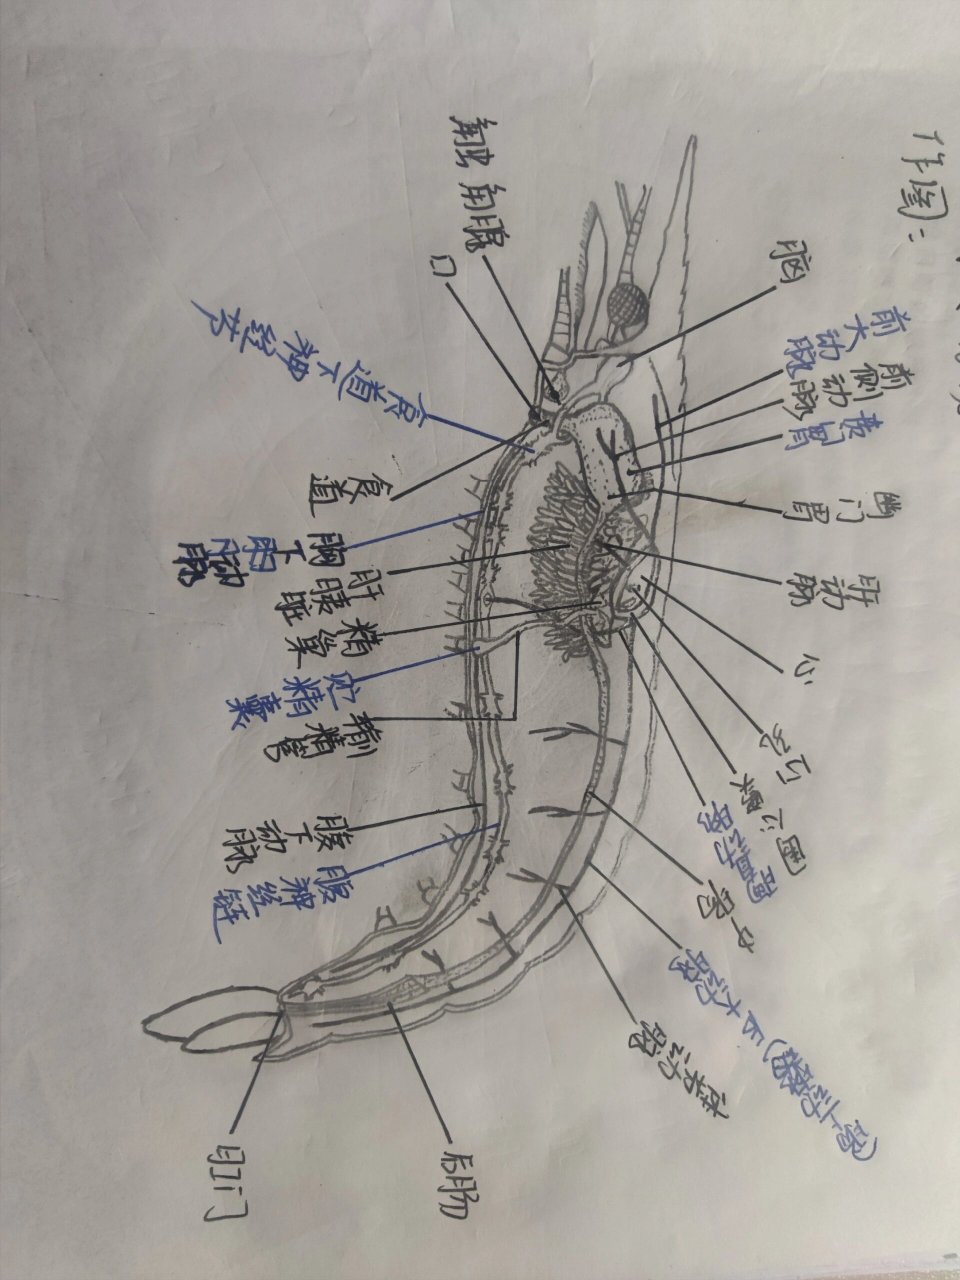 作图：
脑
前大动脉
前侧动脉
贲门胃
幽门胃
肝动脉
心
心孔
围心窦
胸直动脉
中肠
后大动脉(腹上动脉)
后肠
肛门
触角腺
口
食道下神经节
食道
胸下动脉
肝胰脏
精巢
贮精囊
输精管
腹下动脉
腹神经链